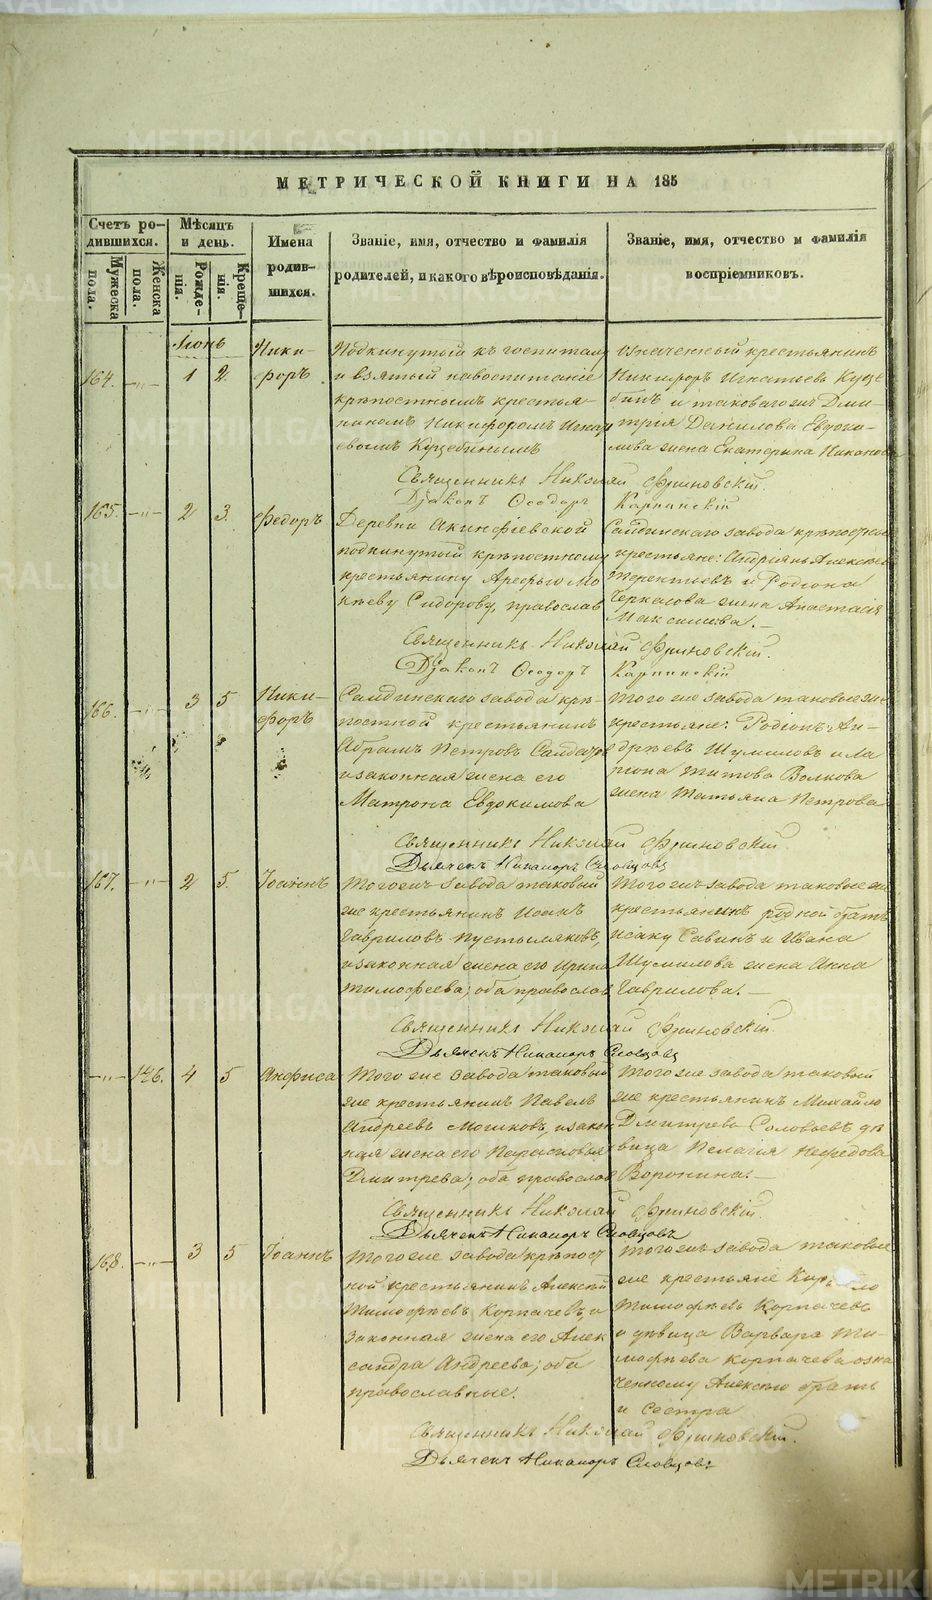 МЕТРИЧЕСКОЙ КНИГИ НА 185
Счетъ ро-
дившихся.
Мужеска
пола.
Женска
пола.
Мѣсяцъ
и день.
Рожде-
нія.
Креще-
нія.
Имена
родив-
шихся.
Званіе, имя, отчество и фамилія
родителей, и какого вѣроисповѣданія.
Званіе, имя, отчество и фамилія
воспріемниковъ.
Іюнь
164. -"- 1 2.
Ники-
форъ
Подкинутый къ госпиталю
и взятый на воспитаніе
крѣпостнымъ крестья-
ниномъ Никифоромъ Игнать
евымъ Кузебинымъ
означенный крестьянинъ
Никифоръ Игнатьевъ Кузе
бинъ и таковаго же Дми-
трія Данилова Евдоки-
мова жена Екатерина Никонова
Священникъ Николай Фриновскій.
Діаконъ Ѳеодоръ Карпинскій
165. -"- 2 3.
Федоръ
Деревни Акинфіевской
подкинутый крѣпостному
крестьянину Арефью Мо
кѣеву Сидорову, православ
Салдинскаго завода крѣпостные
крестьяне: Андріянъ Алексѣев
Терентьевъ и Родіона
Черкасова жена Анастасія
Максимова.—
Священникъ Николай Фриновскій.
Діаконъ Ѳеодоръ Карпинскій
166. -"- 3 5
Ники-
форъ
Салдинскаго завода крѣ-
постной крестьянинъ
Абрамъ Петровъ
и законная жена его
Матрона Евдокимова
того же завода таковые же
крестьяне: Родіонъ Ан-
дрѣевъ Шумиловъ и Ла
ріона Титова Волкова
жена Татьяна Петрова
Священникъ Николай Фриновскій.
Дьячекъ Никаноръ Словцовъ
167. -"- 2 5.
Іоаннъ
Того же завода таковый
же крестьянинъ Исакъ
Гавриловъ Пустыляковъ,
и законная жена его Ирина
Тимофеева; оба православ
Того же завода таковые же
крестьянинъ родной братъ
Исаку Савинъ и Ивана
Шумилова жена Анна
Гаврилова.—
Священникъ Николай Фриновскій.
Дьячекъ Никаноръ Словцовъ
-"- 146. 4 5
Анфиса
Того же завода таковый
же крестьянинъ Павелъ
Андреевъ Мошковъ, и закон
ная жена его Парасковья
Дмитрева; оба православ
Того же завода таковый
же крестьянинъ Михайло
Дмитрева Соловьевъ дѣ
вица Пелагія Нефедова
Воронина.—
Священникъ Николай Фриновскій.
Дьячекъ Никаноръ Словцовъ
168. -"- 3 5
Іоаннъ
Того же завода крѣпост
ной крестьянинъ Алексѣй
Тимофѣевъ Корпачевъ, и
законная жена его Алек
сандра Андреева; оба
православные.
того же завода таковые
же крестьяне Кирило
Тимофѣевъ Корпачевъ
и дѣвица Варвара Ти-
мофѣева Корпачева озна
ченному Алексѣю братъ
и сестра
Священникъ Николай Фриновскій.
Дьячекъ Никаноръ Словцовъ
METRIKI.GASO-URAL.RU